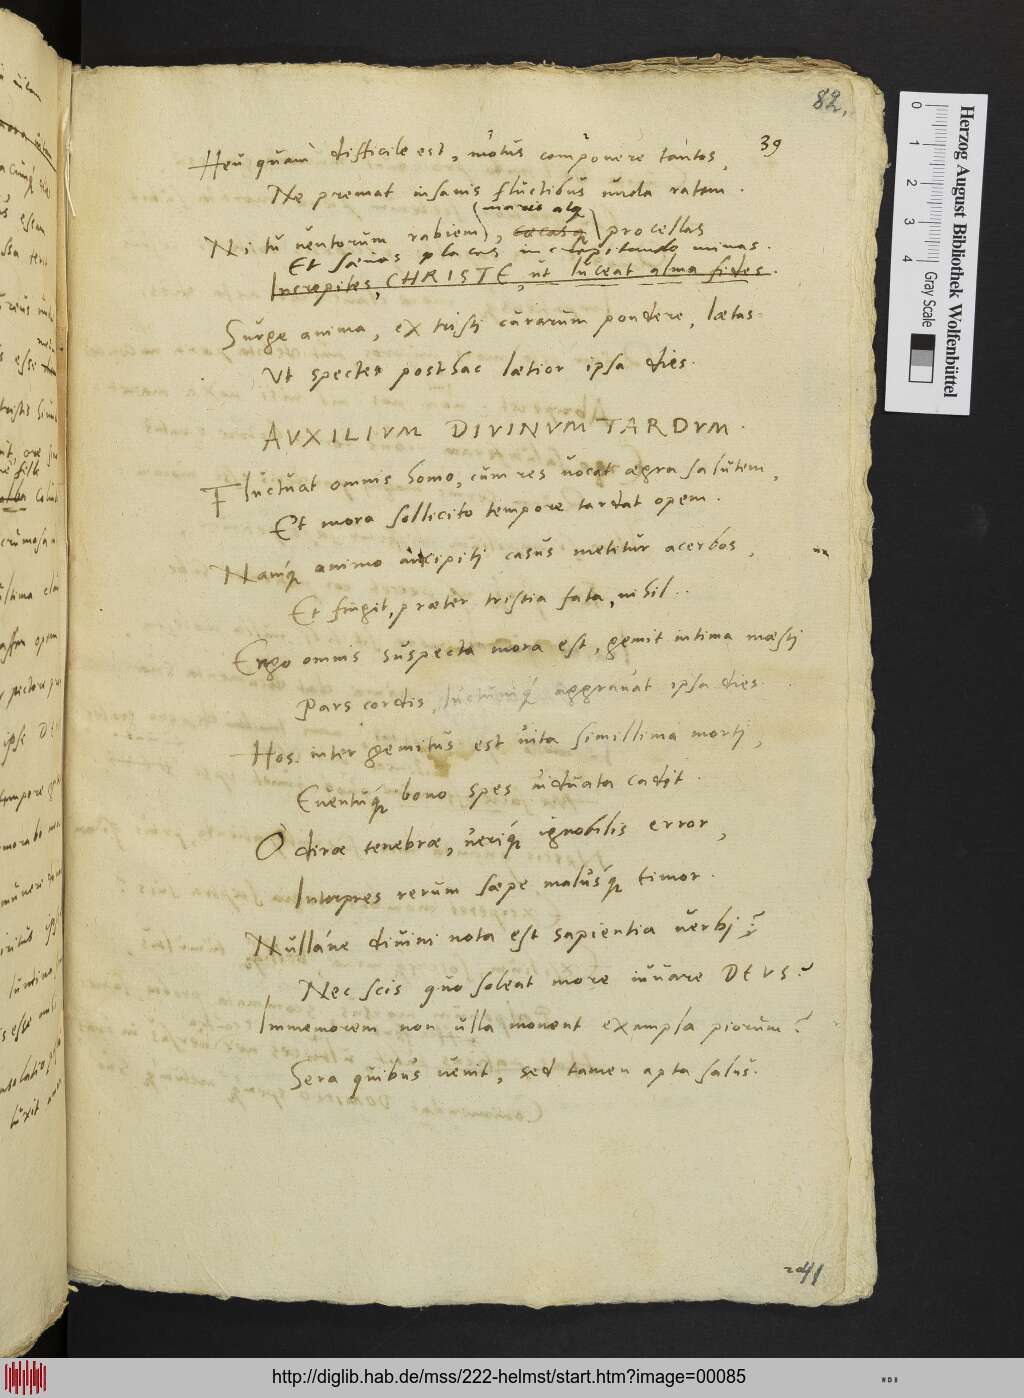 82.
39
Heu quam difficile est, motus componere tantos,
Ne premat insanis fluctibus unda ratem.
maris atq
Ni tu uentorum rabiem, cæcasq procellas
Et sæuas places increpitando minas.
Increpites, CHRISTE, ut luceat alma fides.
Surge anima, ex tristi curarum pondere, lætas
Vt spectes posthac lætior ipsa dies.
AVXILIVM DIVINVM TARDVM.
Fluctuat omnis homo, cum res uocat ægra salutem,
Et mora sollicito tempore tardat opem.
Namq́ animo ancipiti casus metitur acerbos,
Et fingit, præter tristia fata, nihil.
Ergo omnis suspecta mora est, gemit intima mæsti
Pars cordis, luctumq́ aggrauat ipsa dies.
Hos inter gemitus est uita simillima morti,
Euentuq́ bono spes uiduata cadit.
O diræ tenebræ,ueriq́ ignobilis error,
Interpres rerum sæpe malusq́ timor.
Nulláne diuini nota est sapientia uerbi?
Nec scis quo soleat more iuuare DEVS?
Immemorem non ulla monent exempla piorum?
Sera quibus uenit, sed tamen apta salus.
41
Herzog August Bibliothek Wolfenbüttel
Gray Scale
0 1 2 3 4
http://diglib.hab.de/mss/222-helmst/start.htm?image=00085